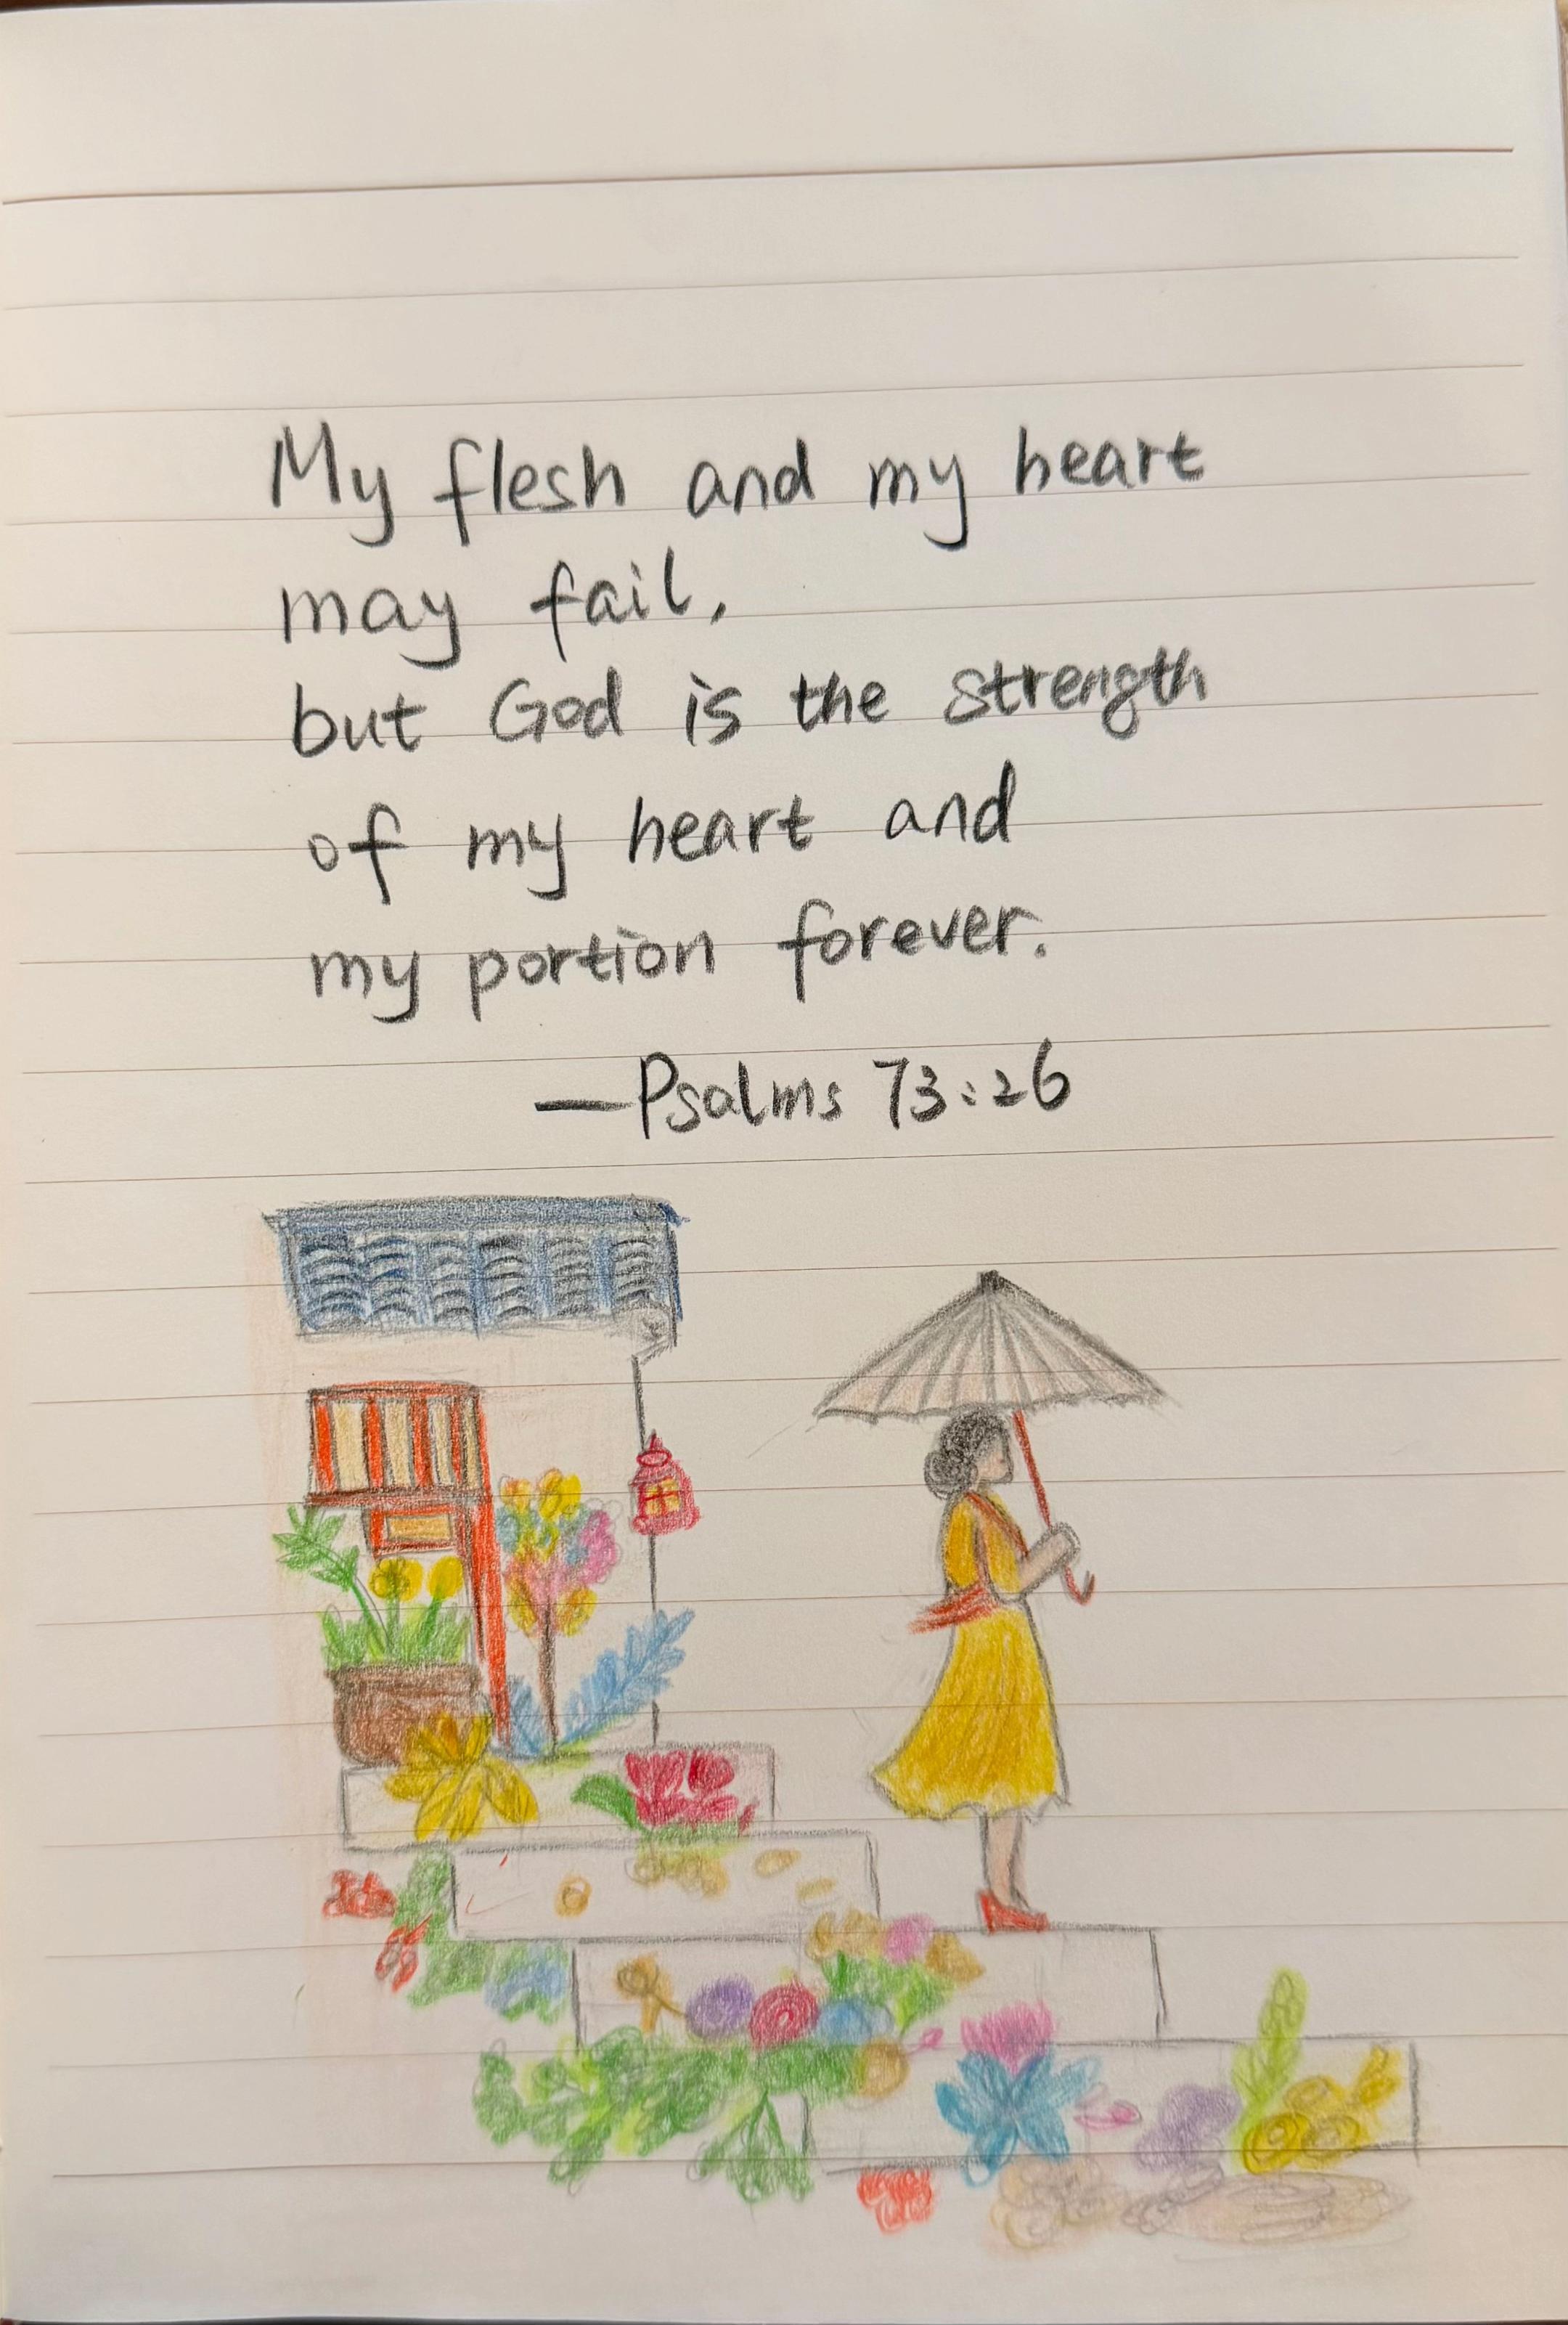 My flesh and my heart
may fail,
but God is the strength
of my heart and
my portion forever.
—Psalms 73:26